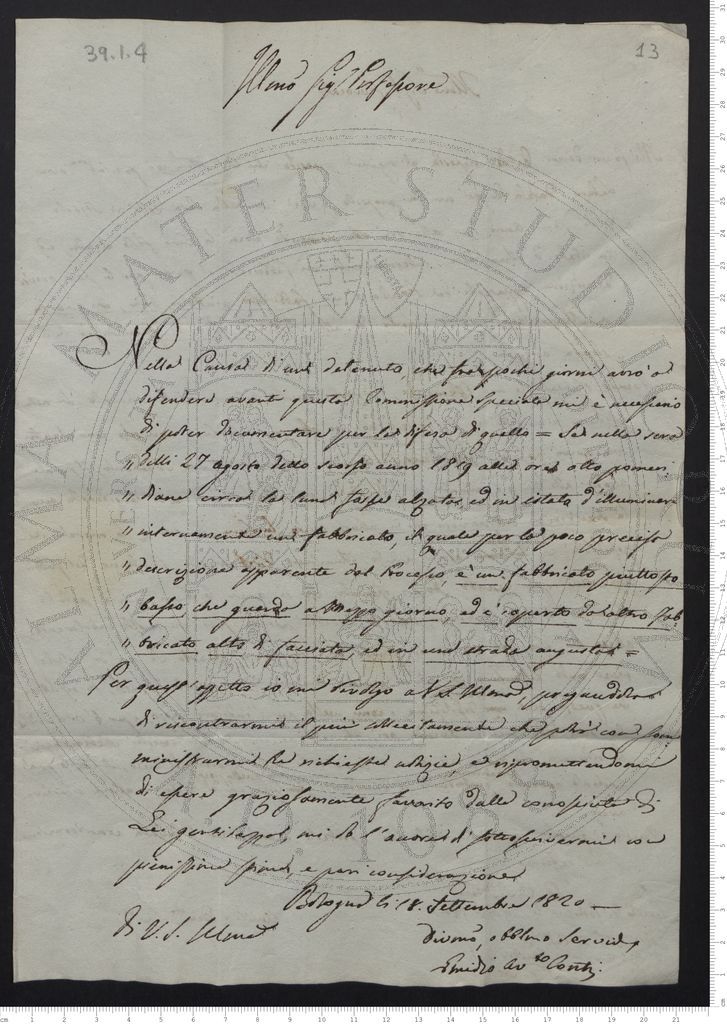 39.1.4
13
Illmo Sig.r Professore
Nella Causa di un detenuto, che fra pochi giorni avrò a
difendere avanti questa Commissione speciale mi è necessario
di poter documentare per la difesa di quello = Se nella sera
„ delli 27 agosto dello scorso anno 1819 alle ore otto pomeri
„ diane circa la luna fosse alzata, ed in istato d'illuminare
„ internamente un fabbricato, il quale per la poco precisa
„ descrizione apparente dal Processo, è un fabbricato piuttosto
„ basso che guarda a Mezzo giorno, ed è coperto da altro fab„
„ bricato alto di facciata, ed in una strada angusta =
Per quest'oggetto io mi rivolgo a V. S. Illma, pregandola
di riscontrarmi il più sollecitamente che potrà con som„
ministrarmi le richieste notizie, e ripromettendomi
di essere graziosamente favorito dalla conosciuta di
Lei gentilezza, mi do l'onore di sottoscrivermi con
pienissima stima, e pari considerazione
Bologna li 18. Settembre 1820 —
Di V. S. Illma
Divmo, obblmo Servid.e
Emidio Avto Conti.
ALMA MATER STUDIORUM
A.D. 1088